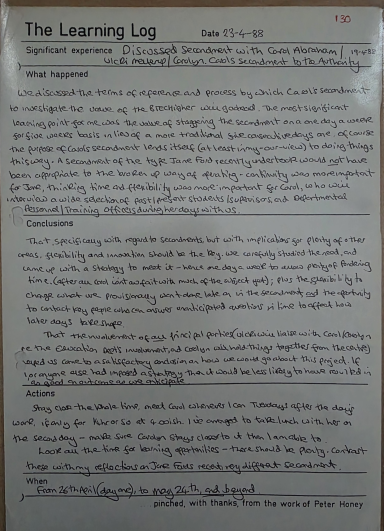 130
The Learning Log Date 23-4-88
Significant experience Discussed secondment with Carol Abraham / 19-4-88
Vicki /Carolyn. Carol's secondment to the Authority
What happened
We discussed the terms of reference and process by which Carol's secondment
to investigate the value of the will go ahead. The most significant
learning point for me was the value of staggering the secondment on a one day a week
for five weeks basis in lieu of a more traditional five consecutive days are. of course
the purpose of Carol's secondment lends itself (at least in my/our view) to doing things
this way. A secondment of the type Jane Ford recently undertook would not have
been appropriate to the broken up way of operating - continuity was more important
for Jane, thinking time and flexibility was more important for Carol, who will
interview a wide selection of past/present students, supervisors, and Departmental
Personnel/Training officers during her days with us.
Conclusions
That, specifically with regard to secondments, but with implications for plenty of other
areas, flexibility and innovation should be the key. We carefully studied the need, and
came up with a strategy to meet it - hence one day a week to allow plenty of pondering
time. (After all, Carol is not au fait with much of the subject yet); plus the flexibility to
change what we provisionally want done later on in the secondment, and the opportunity
to contact key people who can answer unanticipated questions in time to affect how
later days take shape.
That the involvement of all principal parties (Vicki will liaise with Carol/Carolyn
re the Education Dept's involvement, and Carolyn will hold things together from the centre)
helped us come to a satisfactory conclusion on how we would go about this project. If
I or anyone else had imposed a strategy then it would be less likely to have resulted in
as good an outcome as we anticipate
Actions
Stay close the whole time, meet Carol whenever I can Tuesdays after the day's
work, if only for 1/2 hr or so at 4 o'clock. I've arranged to take lunch with her on
the second day - make sure Carolyn stays closer to it than I am able to.
Look all the time for learning opportunities - there should be plenty. Contrast
these with my reflections on Jane Ford's recent, very different secondment.
When
From 26th April (day one), to May 24th, and beyond.
pinched, with thanks, from the work of Peter Honey